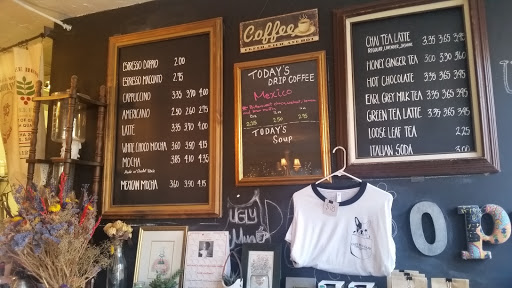 ESPRESSO DOPPIO 2.00
ESPRESSO MACCHIATO 2.75
CAPPUCCINO 3.35 3.90 4.00
AMERICANO 2.50 2.60 2.75
LATTE 3.35 3.90 4.00
WHITE CHOCO MOCHA 3.60 3.90 4.15
MOCHA 3.85 4.10 4.35
MEXICAN MOCHA 3.60 3.90 4.15
Coffee
TODAY'S
DRIP COFFEE
Mexico
TODAY'S
Soup
CHAI TEA LATTE 3.35 3.65 3.95
HONEY GINGER TEA 3.00 3.30 3.60
HOT CHOCOLATE 3.35 3.65 3.95
EARL GREY MILK TEA 3.35 3.65 3.95
GREEN TEA LATTE 3.35 3.65 3.95
LOOSE LEAF TEA 2.25
ITALIAN SODA 3.00
UGLY
Mug
O P